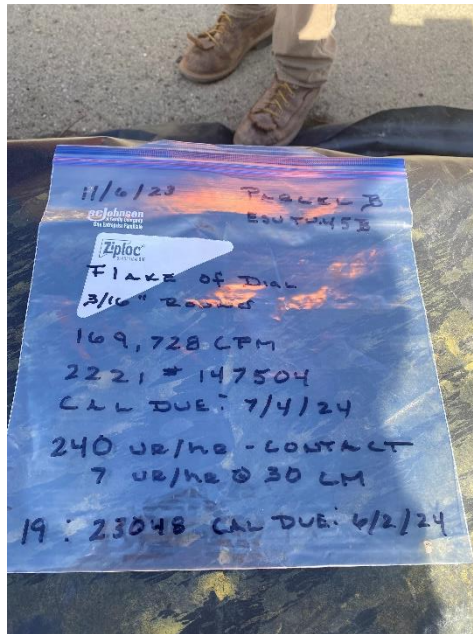 11/6/23 PARCEL B
SC Johnson
A Family Company
Ziploc
FLAKE OF DIAL
3/16" ROUND
169,728 CPM
2221 # 147504
CAL DUE: 7/4/24
240 UR/HR - CONTACT
7 UR/HR @ 30 CM
19: 23048 CAL DUE: 6/2/24